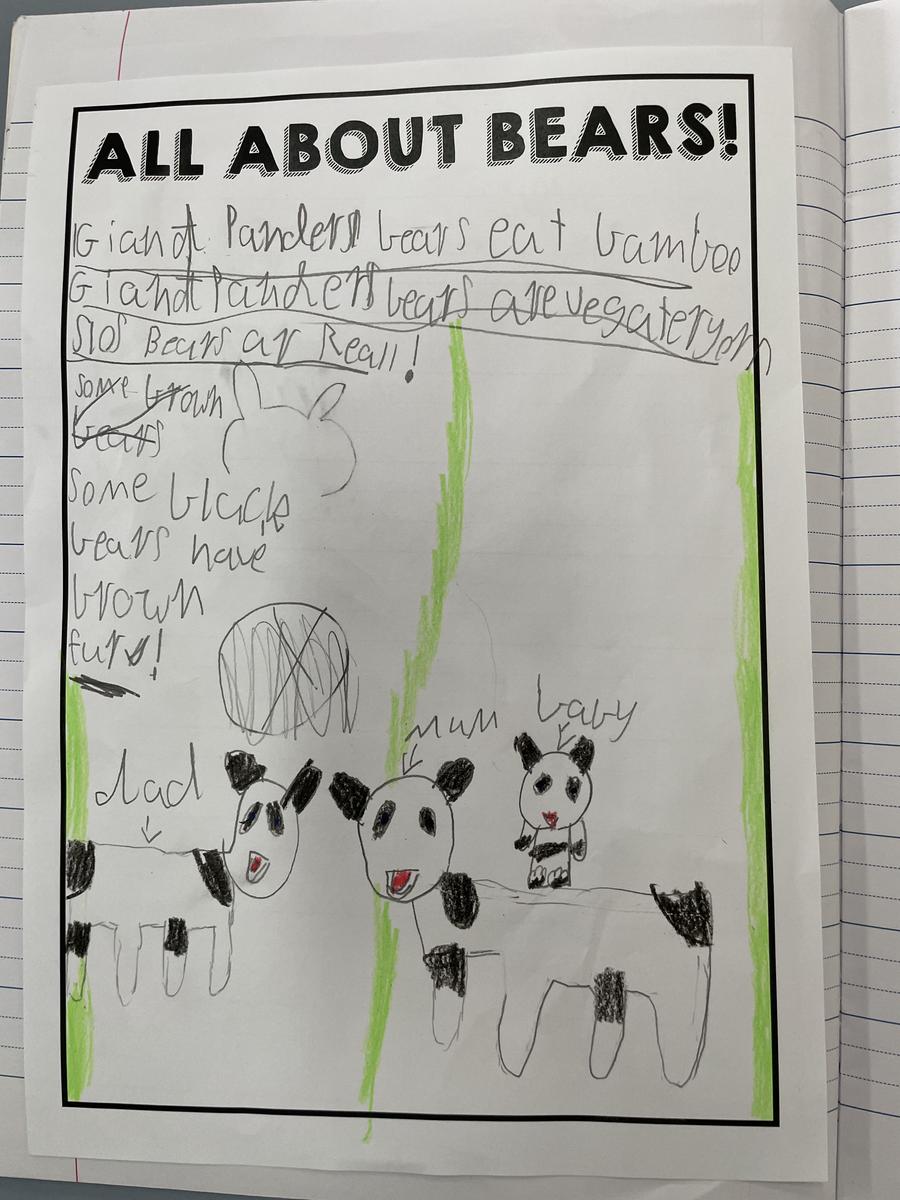 ALL ABOUT BEARS!
Giant Panders bears eat bamboo
Giant Panders bears are vegateryorn
Slos Bears ar Reall!
some brown
bears
some black
bears have
brown
furs!
dad
mum
baby